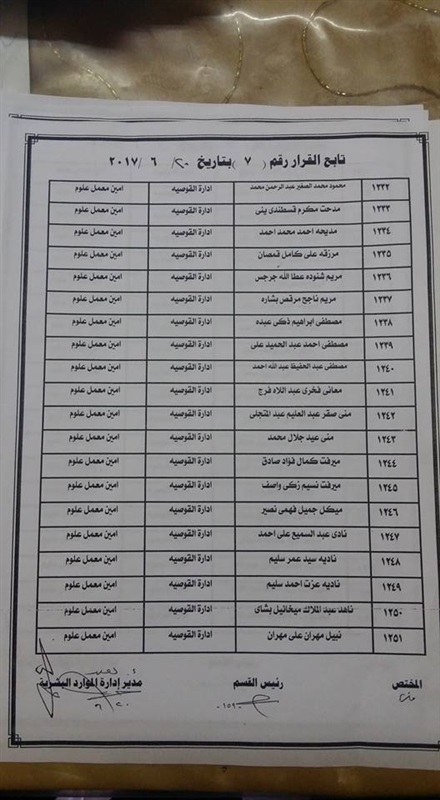 تابع القرار رقم ( ٧ ) بتاريخ ٢٠ / ٦ / ٢٠١٧
١٢٣٢ محمود محمد الصغير عبد الرحمن محمد ادارة القوصيه امين معمل علوم
١٢٣٣ مدحت مكرم قسطندى ينى ادارة القوصيه امين معمل علوم
١٢٣٤ مديحه احمد محمد احمد ادارة القوصيه امين معمل علوم
١٢٣٥ مرزقه على كامل قمصان ادارة القوصيه امين معمل علوم
١٢٣٦ مريم شنوده عطا الله جرجس ادارة القوصيه امين معمل علوم
١٢٣٧ مريم ناجح مرقص بشاره ادارة القوصيه امين معمل علوم
١٢٣٨ مصطفى ابراهيم ذكى عبده ادارة القوصيه امين معمل علوم
١٢٣٩ مصطفى احمد عبد الحميد على ادارة القوصيه امين معمل علوم
١٢٤٠ مصطفى عبد الحفيظ عبد الله احمد ادارة القوصيه امين معمل علوم
١٢٤١ معانى فخرى عبد اللاه فرج ادارة القوصيه امين معمل علوم
١٢٤٢ منى صقر عبد العليم عبد المتجلى ادارة القوصيه امين معمل علوم
١٢٤٣ منى عيد جلال محمد ادارة القوصيه امين معمل علوم
١٢٤٤ ميرفت كمال فؤاد صادق ادارة القوصيه امين معمل علوم
١٢٤٥ ميرفت نسيم زكى واصف ادارة القوصيه امين معمل علوم
١٢٤٦ ميكل جميل فهمى نصير ادارة القوصيه امين معمل علوم
١٢٤٧ نادى عبد السميع على احمد ادارة القوصيه امين معمل علوم
١٢٤٨ ناديه سيد عمر سليم ادارة القوصيه امين معمل علوم
١٢٤٩ ناديه عزت احمد سليم ادارة القوصيه امين معمل علوم
١٢٥٠ ناهد عبد الملاك ميخائيل بشاى ادارة القوصيه امين معمل علوم
١٢٥١ نبيل مهران على مهران ادارة القوصيه امين معمل علوم
المختص رئيس القسم مدير إدارة الموارد البشرية
٦/٢٠